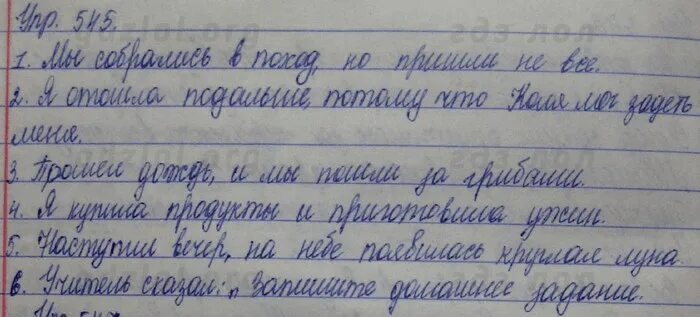 Упр. 545.
1. Мы собрались в поход, но пришли не все.
2. Я отошла подальше, потому что Коля мог задеть
меня.
3. Прошёл дождь, и мы пошли за грибами.
4. Я купила продукты и приготовила ужин.
5. Наступил вечер, на небе появилась круглая луна.
6. Учитель сказал: „ Запишите домашнее задание.
Упр. 547